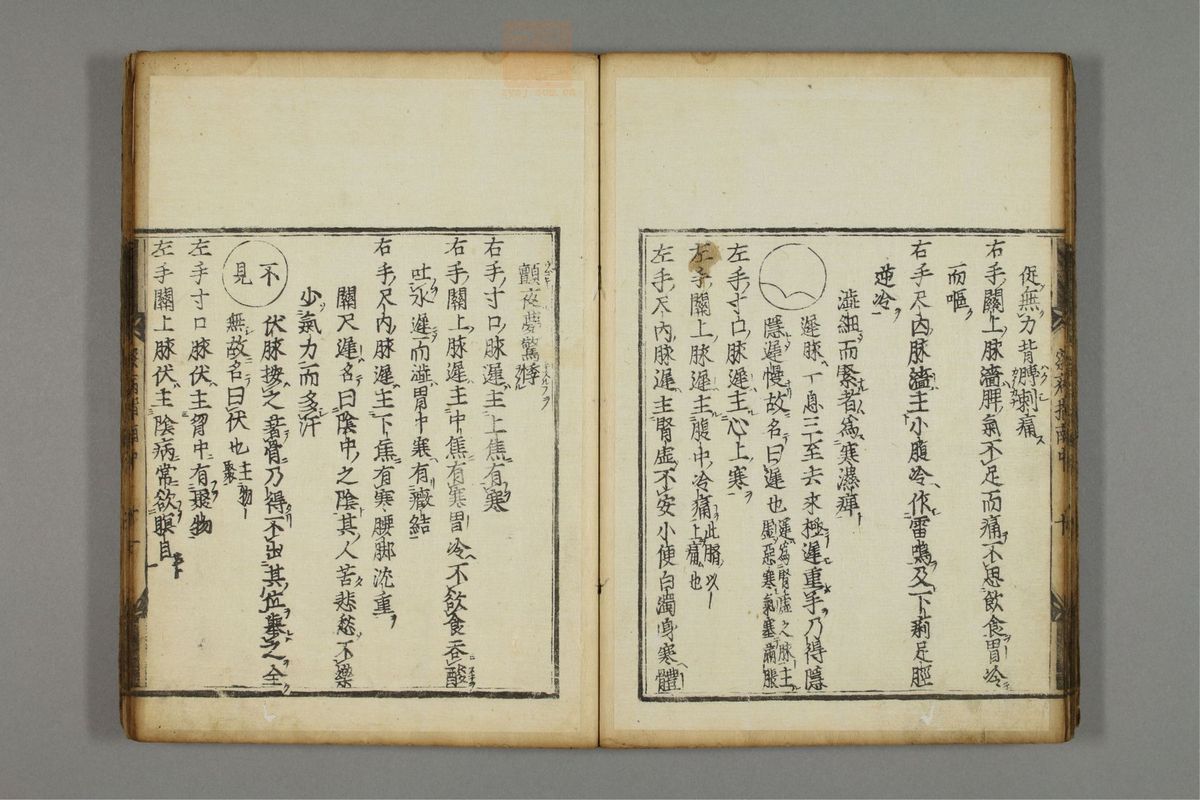 促無力背膊刺痛
右手關上脉濇脾氣不足而痛不思飲食胃冷
而嘔
右手尺内脉濇主小腹冷作雷鳴及下痢足脛
逆冷
濇細而緊者為寒濕痺
遲脉一息三至去來極遲重手乃得隱
隱遲慢故名曰遲也 遲為腎虛之脉主
虛惡寒氣塞滿脹
左手寸口脉遲主心上寒
左手關上脉遲主腹中冷痛
左手尺内脉遲主腎虛不安小便白濁身寒體
顫夜夢驚悸
右手寸口脉遲主上焦有寒
右手關上脉遲主中焦有寒胃冷不欲食吞酸
吐水遲而濇胃中寒有癥結
右手尺内脉遲主下焦有寒腰脚沈重
關尺遲名曰陰中之陰其人苦悲愁不樂
少氣力而多汗
不見
伏脉按之著骨乃得不出其位舉之全
無故名曰伏也 主物
聚
左手寸口脉伏主胷中有聚物
左手關上脉伏主陰病常欲瞑目